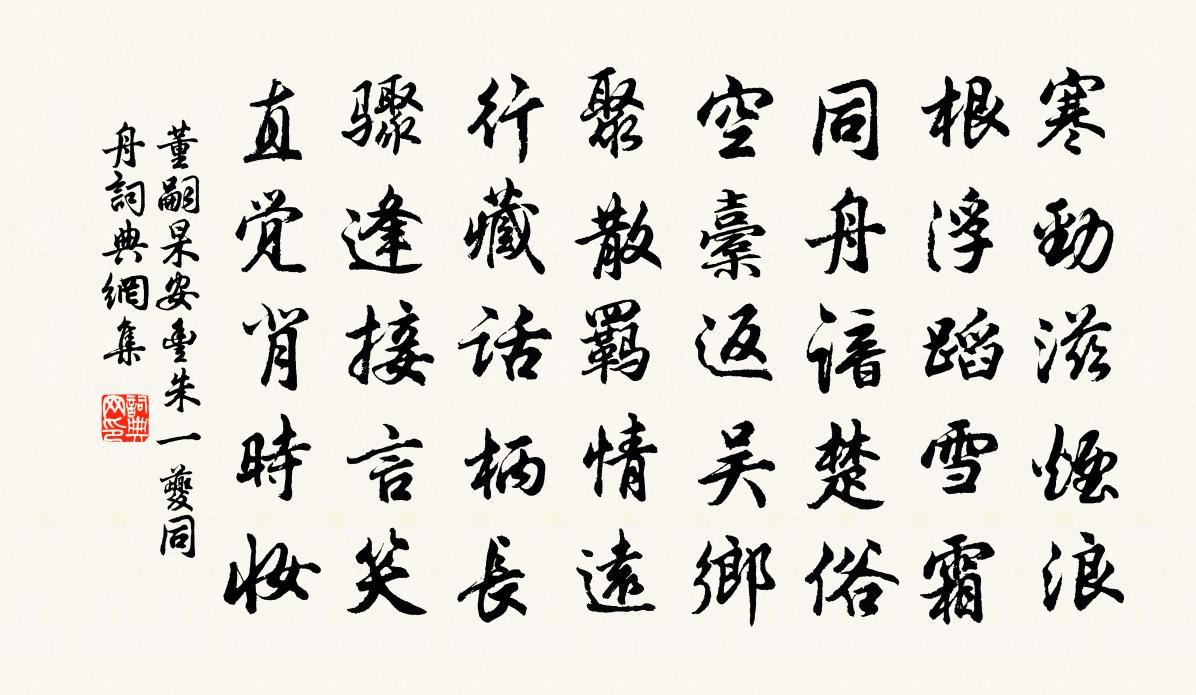 寒勁滋煙浪
根浮蹈雪霜
同舟諳楚俗
空橐返吴鄉
聚散羈情遠
行藏話柄長
驟逢接言笑
直覺肖時妝
董嗣杲安豐朱一夔同
舟詞典網集
詞典网印